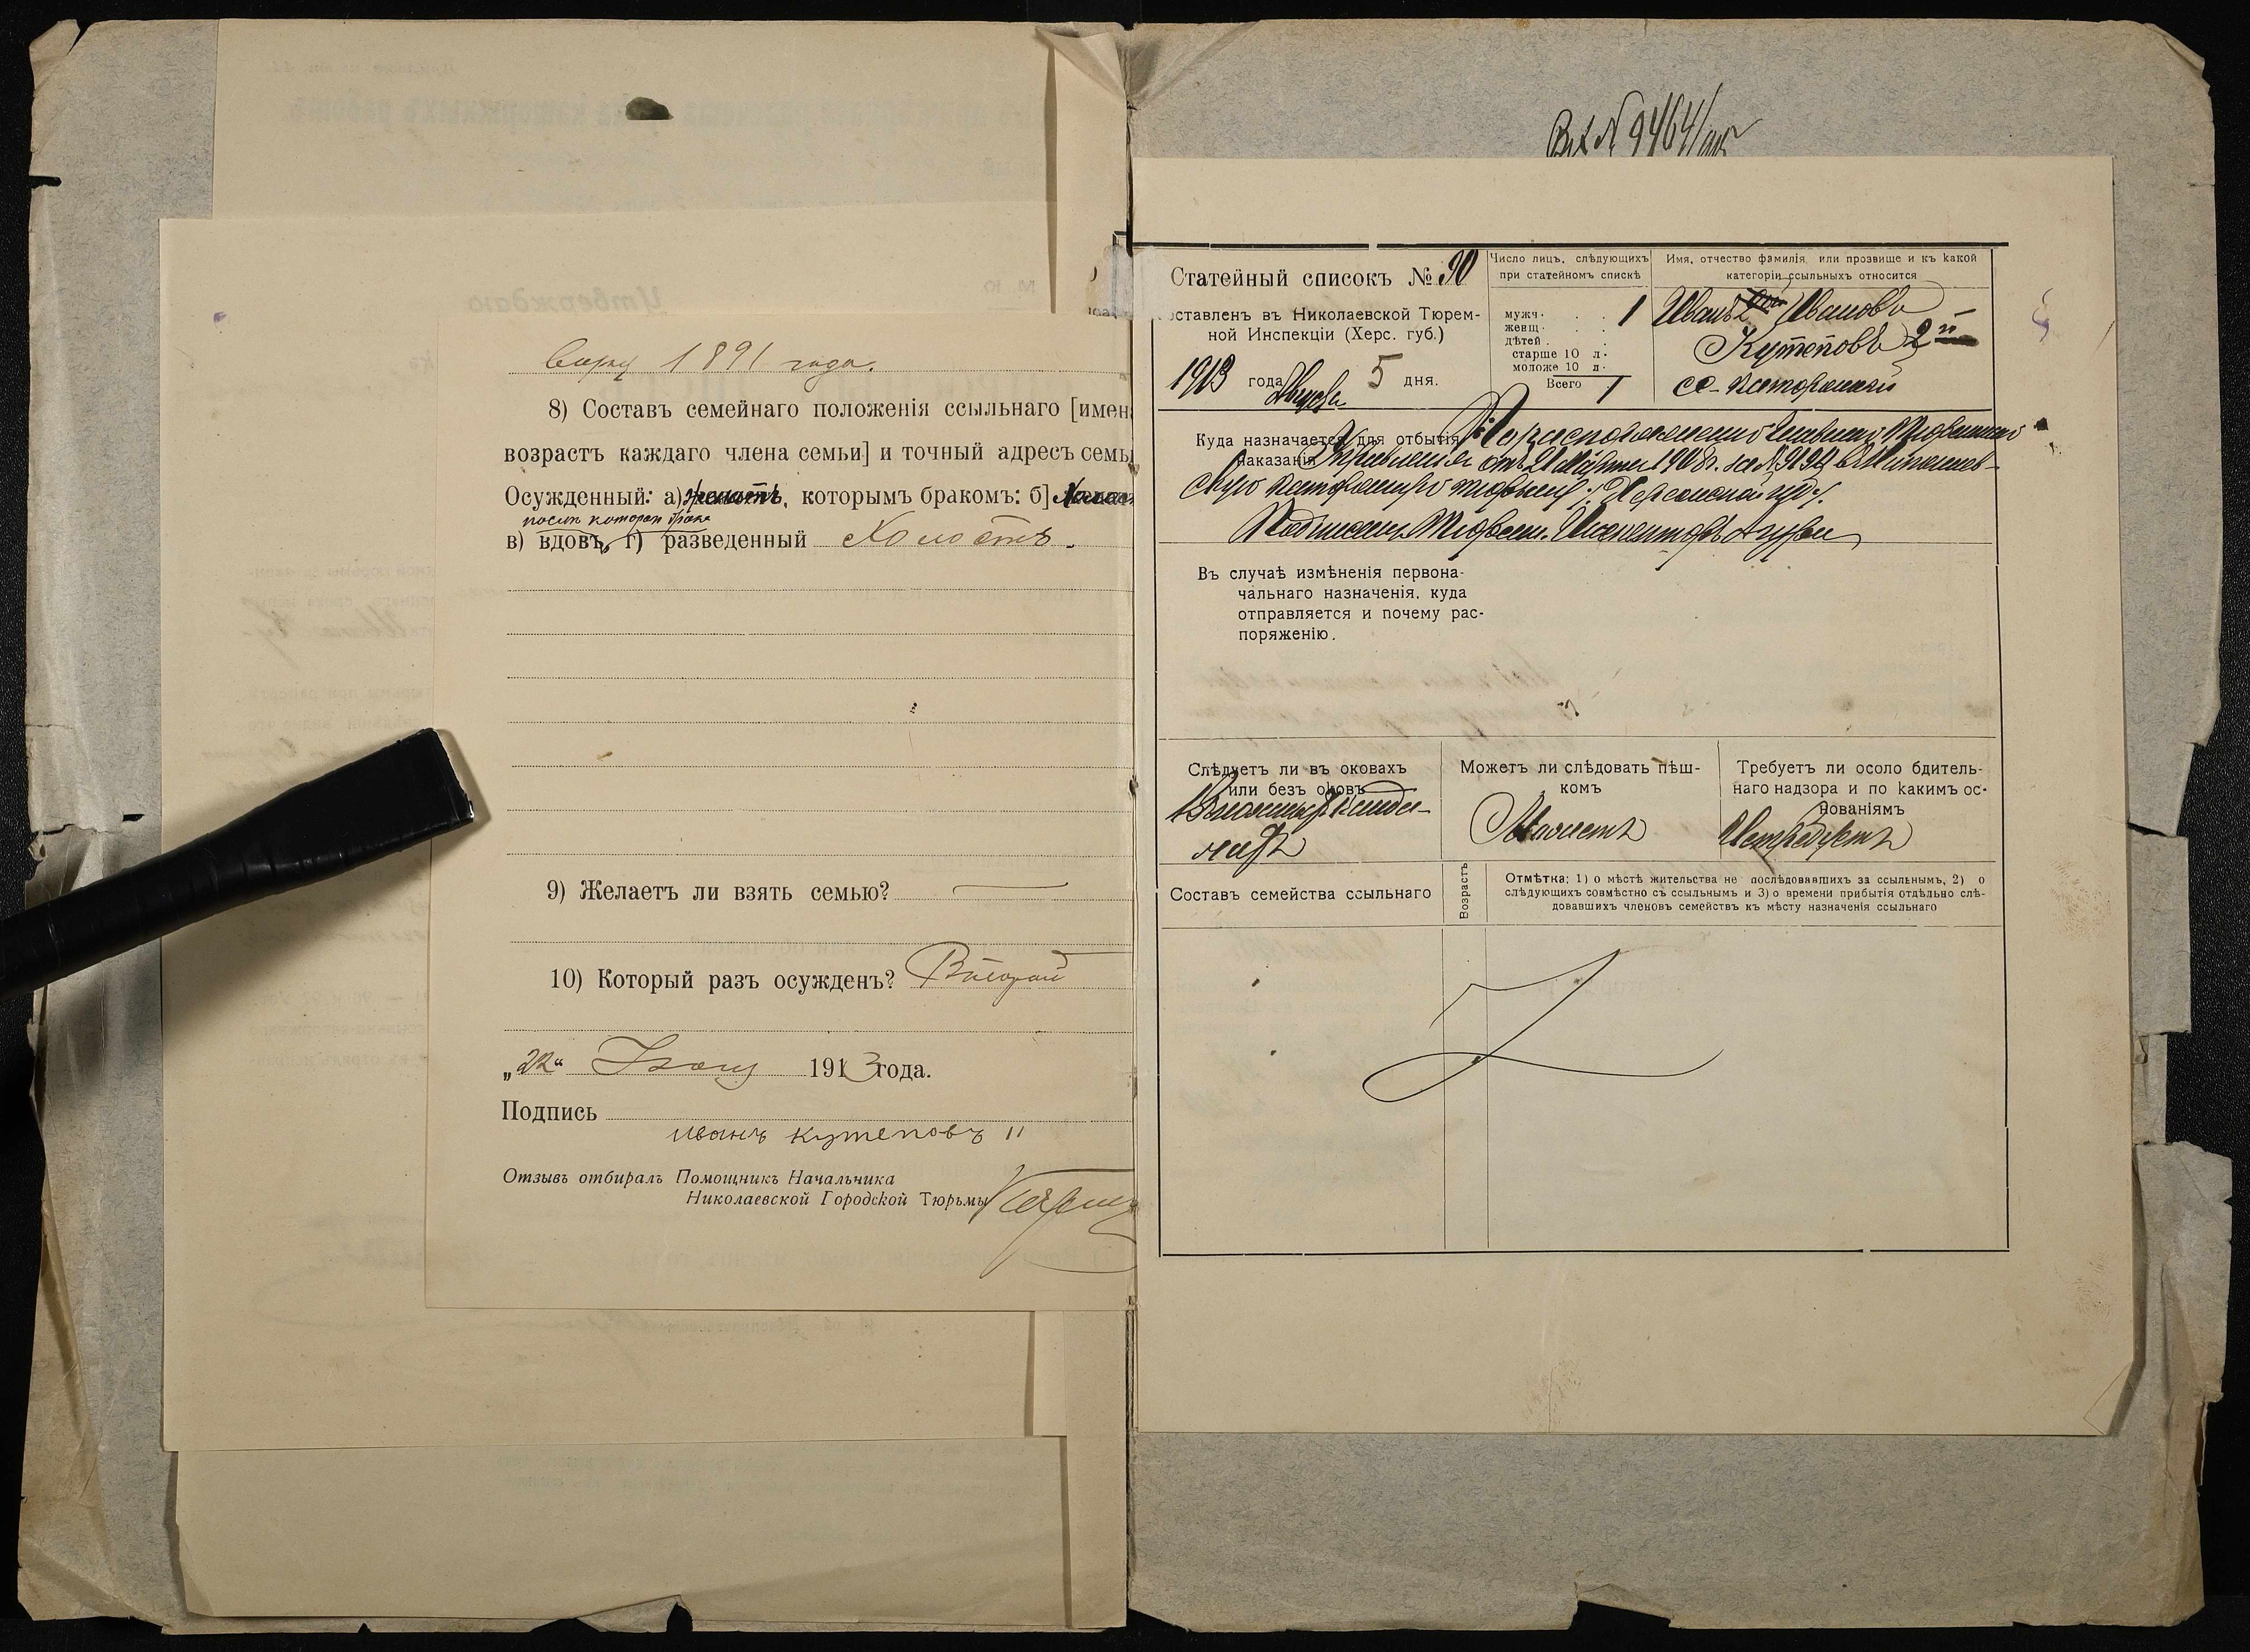 1891 года.
8) Составъ семейнаго положенія ссыльнаго [имен
возрастъ каждаго члена семьи] и точный адресъ семь
Осужденный: а) женатъ, которымъ бракомъ: б]
послѣ котораго брака
в) вдовъ, г) разведенный Холостъ.
9) Желаетъ ли взять семью?
10) Который разъ осужденъ? Второй
„22“ 1913 года.
Подпись
иванъ кутеповъ II
Отзывъ отбиралъ Помощникъ Начальника
Николаевской Городской Тюрьмы
Вх № 9464/
Статейный списокъ № 90
оставленъ въ Николаевской Тюрем-
ной Инспекціи (Херс. губ.)
1913 года Августа 5 дня.
Число лицъ, слѣдующихъ
при статейномъ спискѣ
мужч. 1
женщ.
дѣтей
старше 10 л.
моложе 10 л.
Всего 1
Имя, отчество фамилія, или прозвище и къ какой
категоріи ссыльныхъ относится
Иванъ Ивановъ
Кутеповъ 2й
сс-каторжный
Куда назначается для отбытія По распоряженію Главнаго Тюремнаго
наказанія Управленія отъ 21 Марта 1908 г. за № въ Николаев-
скую каторжную тюрьму, Херсонской губ.
Подписалъ Тюремн. Инспекторъ
Въ случаѣ измѣненія первона-
чальнаго назначенія, куда
отправляется и почему рас-
поряженію.
Слѣдуетъ ли въ оковахъ
или безъ оковъ
Въ ножныхъ канда-
лахъ
Можетъ ли слѣдовать пѣш-
комъ
Можетъ
Требуетъ ли осоло бдитель-
наго надзора и по какимъ ос-
нованіямъ
Не требуетъ
Составъ семейства ссыльнаго
Возрастъ
Отмѣтка; 1) о мѣстѣ жительства не послѣдовавшихъ за ссыльнымъ, 2) о
слѣдующихъ совмѣстно съ ссыльнымъ и 3) о времени прибытія отдѣльно слѣ-
довавшихъ членовъ семействъ къ мѣсту назначенія ссыльнаго